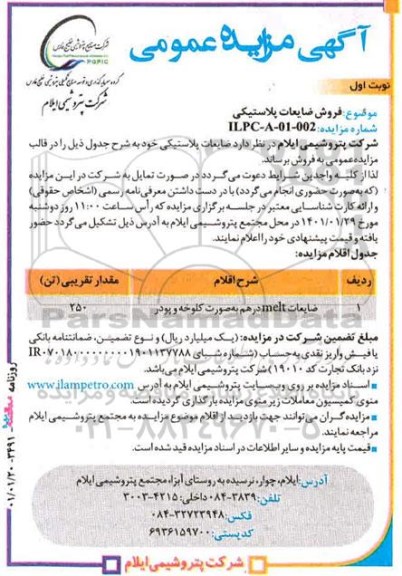 آگهی مزایده عمومی
شرکت صنایع پتروشیمی خلیج فارس
PGPIC
گروه سرمایه گذاری و توسعه صنایع تکمیلی پتروشیمی خلیج فارس
شرکت پتروشیمی ایلام
نوبت اول
موضوع: فروش ضایعات پلاستیکی
شماره مزایده: ILPC-A-01-002
شرکت پتروشیمی ایلام در نظر دارد ضایعات پلاستیکی خود به شرح جدول ذیل را در قالب
مزایده عمومی به فروش برساند.
لذا از کلیه واجدین شرایط دعوت می‌گردد در صورت تمایل به شرکت در این مزایده
(که به‌صورت حضوری انجام می‌گردد) با در دست داشتن معرفی‌نامه رسمی (اشخاص حقوقی)
و ارائه کارت شناسایی معتبر در جلسه برگزاری مزایده که رأس ساعت ۱۱:۰۰ روز دوشنبه
مورخ ۱۴۰۱/۰۱/۲۹ در محل مجتمع پتروشیمی ایلام به آدرس ذیل تشکیل می‌گردد حضور
یافته و قیمت پیشنهادی خود را اعلام نمایند.
جدول اقلام مزایده:
ردیف شرح اقلام مقدار تقریبی (تن)
۱ ضایعات melt درهم به‌صورت کلوخه و پودر ۲۵۰
مبلغ تضمین شرکت در مزایده: (یک میلیارد ریال) و نوع تضمین، ضمانتنامه بانکی
یا فیش واریز نقدی به‌حساب (شماره شبای IR۰۷۰۱۸۰۰۰۰۰۰۰۰۰۱۹۰۱۱۳۷۷۸۸
نزد بانک تجارت کد ۱۹۰۱۰) شرکت پتروشیمی ایلام می‌باشد.
اسناد مزایده بر روی وب‌سایت پتروشیمی ایلام به آدرس www.ilampetro.com
منوی کمیسیون معاملات زیر منوی مزایده بارگذاری گردیده است.
مزایده‌گران می‌توانند جهت بازدید از اقلام موضوع مزایده به مجتمع پتروشیمی ایلام
مراجعه نمایند.
قیمت پایه مزایده و سایر اطلاعات در اسناد مزایده قید شده است.
آدرس: ایلام، چوار، نرسیده به روستای آبزا، مجتمع پتروشیمی ایلام
تلفن: ۰۸۴-۳۸۳۹ داخلی: ۴۲۱۵-۳۰۰۳
فکس: ۰۸۴-۳۲۷۲۳۹۴۸
کدپستی: ۶۹۳۶۱۵۹۷۰۰
شرکت پتروشیمی ایلام
۰۲۱-۸۸۳۴۹۶۷۰-۵